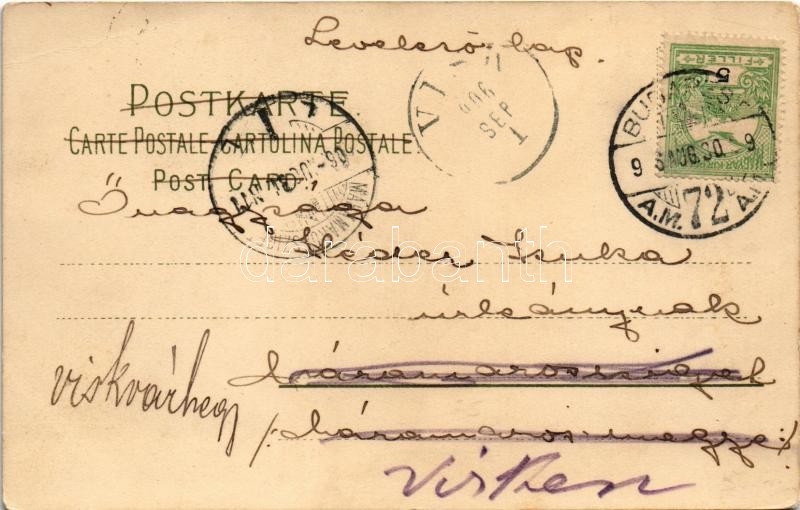 Levelező lap.
POSTKARTE
CARTE POSTALE - CARTOLINA POSTALE.
POST CARD
FILLER
5
BUDAPEST
9 AUG. 30 9
A.M. 72 A.M.
VISK
906
SEP
1
906 AUG 31
Őnagysága
Héder Ilonka
úrleánynak
Máramarossziget
/: Máramaros megye :/
viskvárhegy
Visken
darabanth